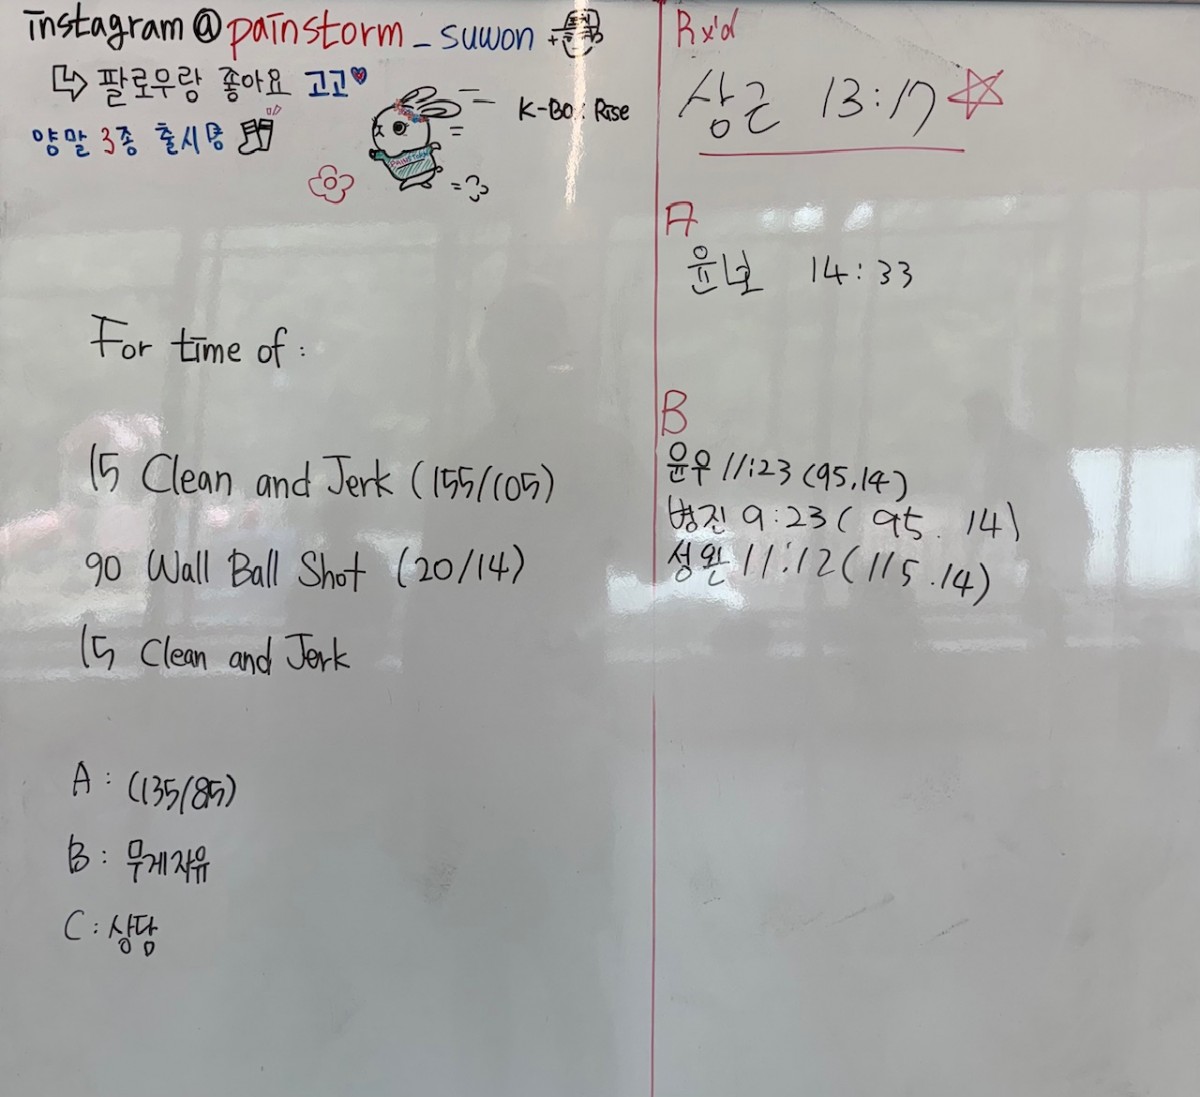 instagram@painstorm_suwon
팔로우랑 좋아요 고고
양말 3종 출시
PAINSTORM
K-Bo : Rise
For time of :
15 Clean and Jerk (155/105)
90 Wall Ball Shot (20/14)
15 Clean and Jerk
A : (135/85)
B : 무게자유
C : 상담
Rx'd
상근 13:17
A
윤보 14:33
B
윤우 11:23 (95.14)
병진 9:23 ( 95. 14)
성완 11:12 (115.14)